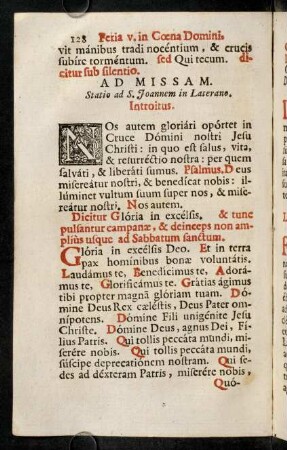 128 Feria v. in Cœna Domini.
vit mánibus tradi nocéntium, & crucis
subíre torméntum. sed Qui tecum. di-
citur sub silentio.
AD MISSAM.
Statio ad S. Joannem in Laterano.
Introitus.
NOs autem gloriári opórtet in
Cruce Dómini nostri Jesu
Christi: in quo est salus, vita,
& resurréctio nostra: per quem
salváti, & liberáti sumus. Psalmus. Deus
misereátur nostri, & benedícat nobis: il-
lúminet vultum suum super nos, & mise-
reátur nostri. Nos autem.
Dicitur Glória in excélsis. & tunc
pulsantur campanæ, & deinceps non am-
pliùs usque ad Sabbatum sanctum.
Glória in excélsis Deo. Et in terra
pax homínibus bonæ voluntátis.
Laudámus te, Benedícimus te, Adorá-
mus te, Glorificámus te. Grátias ágimus
tibi propter magnã glóriam tuam. Dó-
mine Deus Rex cæléstis, Deus Pater om-
nípotens. Dómine Fili unigénite Jesu
Christe. Dómine Deus, agnus Dei, Fí-
lius Patris. Qui tollis peccáta mundi, mi-
serére nobis. Qui tollis peccáta mundi,
súscipe deprecatiónem nostram. Qui se-
des ad déxteram Patris, miserére nobis,
Quó-